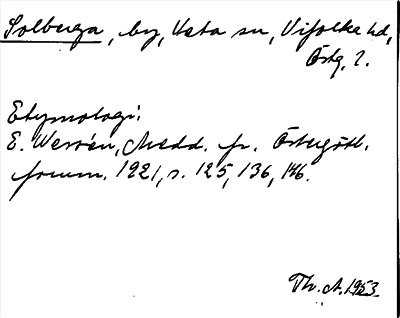 Solberga, by, Veta sn, Vifolka hd,
Östg. l.
Etymologi:
E. Wessén, Medd. fr. Östergötl.
fornm. 1921, s. 125, 136, 146.
Th. A. 1953.